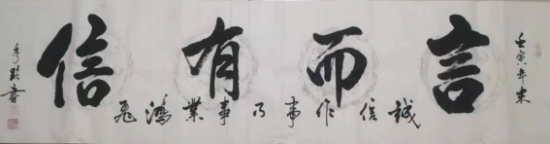 壬寅年末
言而有信
誠信作事乃事業鴻飛
書